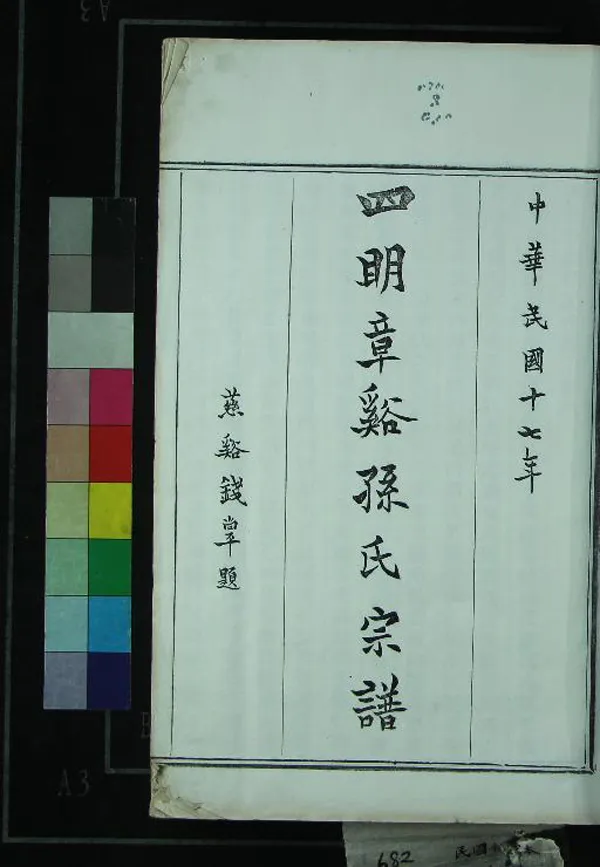 中華民國十七年
四明章谿孫氏宗譜
慈谿錢罕題
A3
A3
682
民國